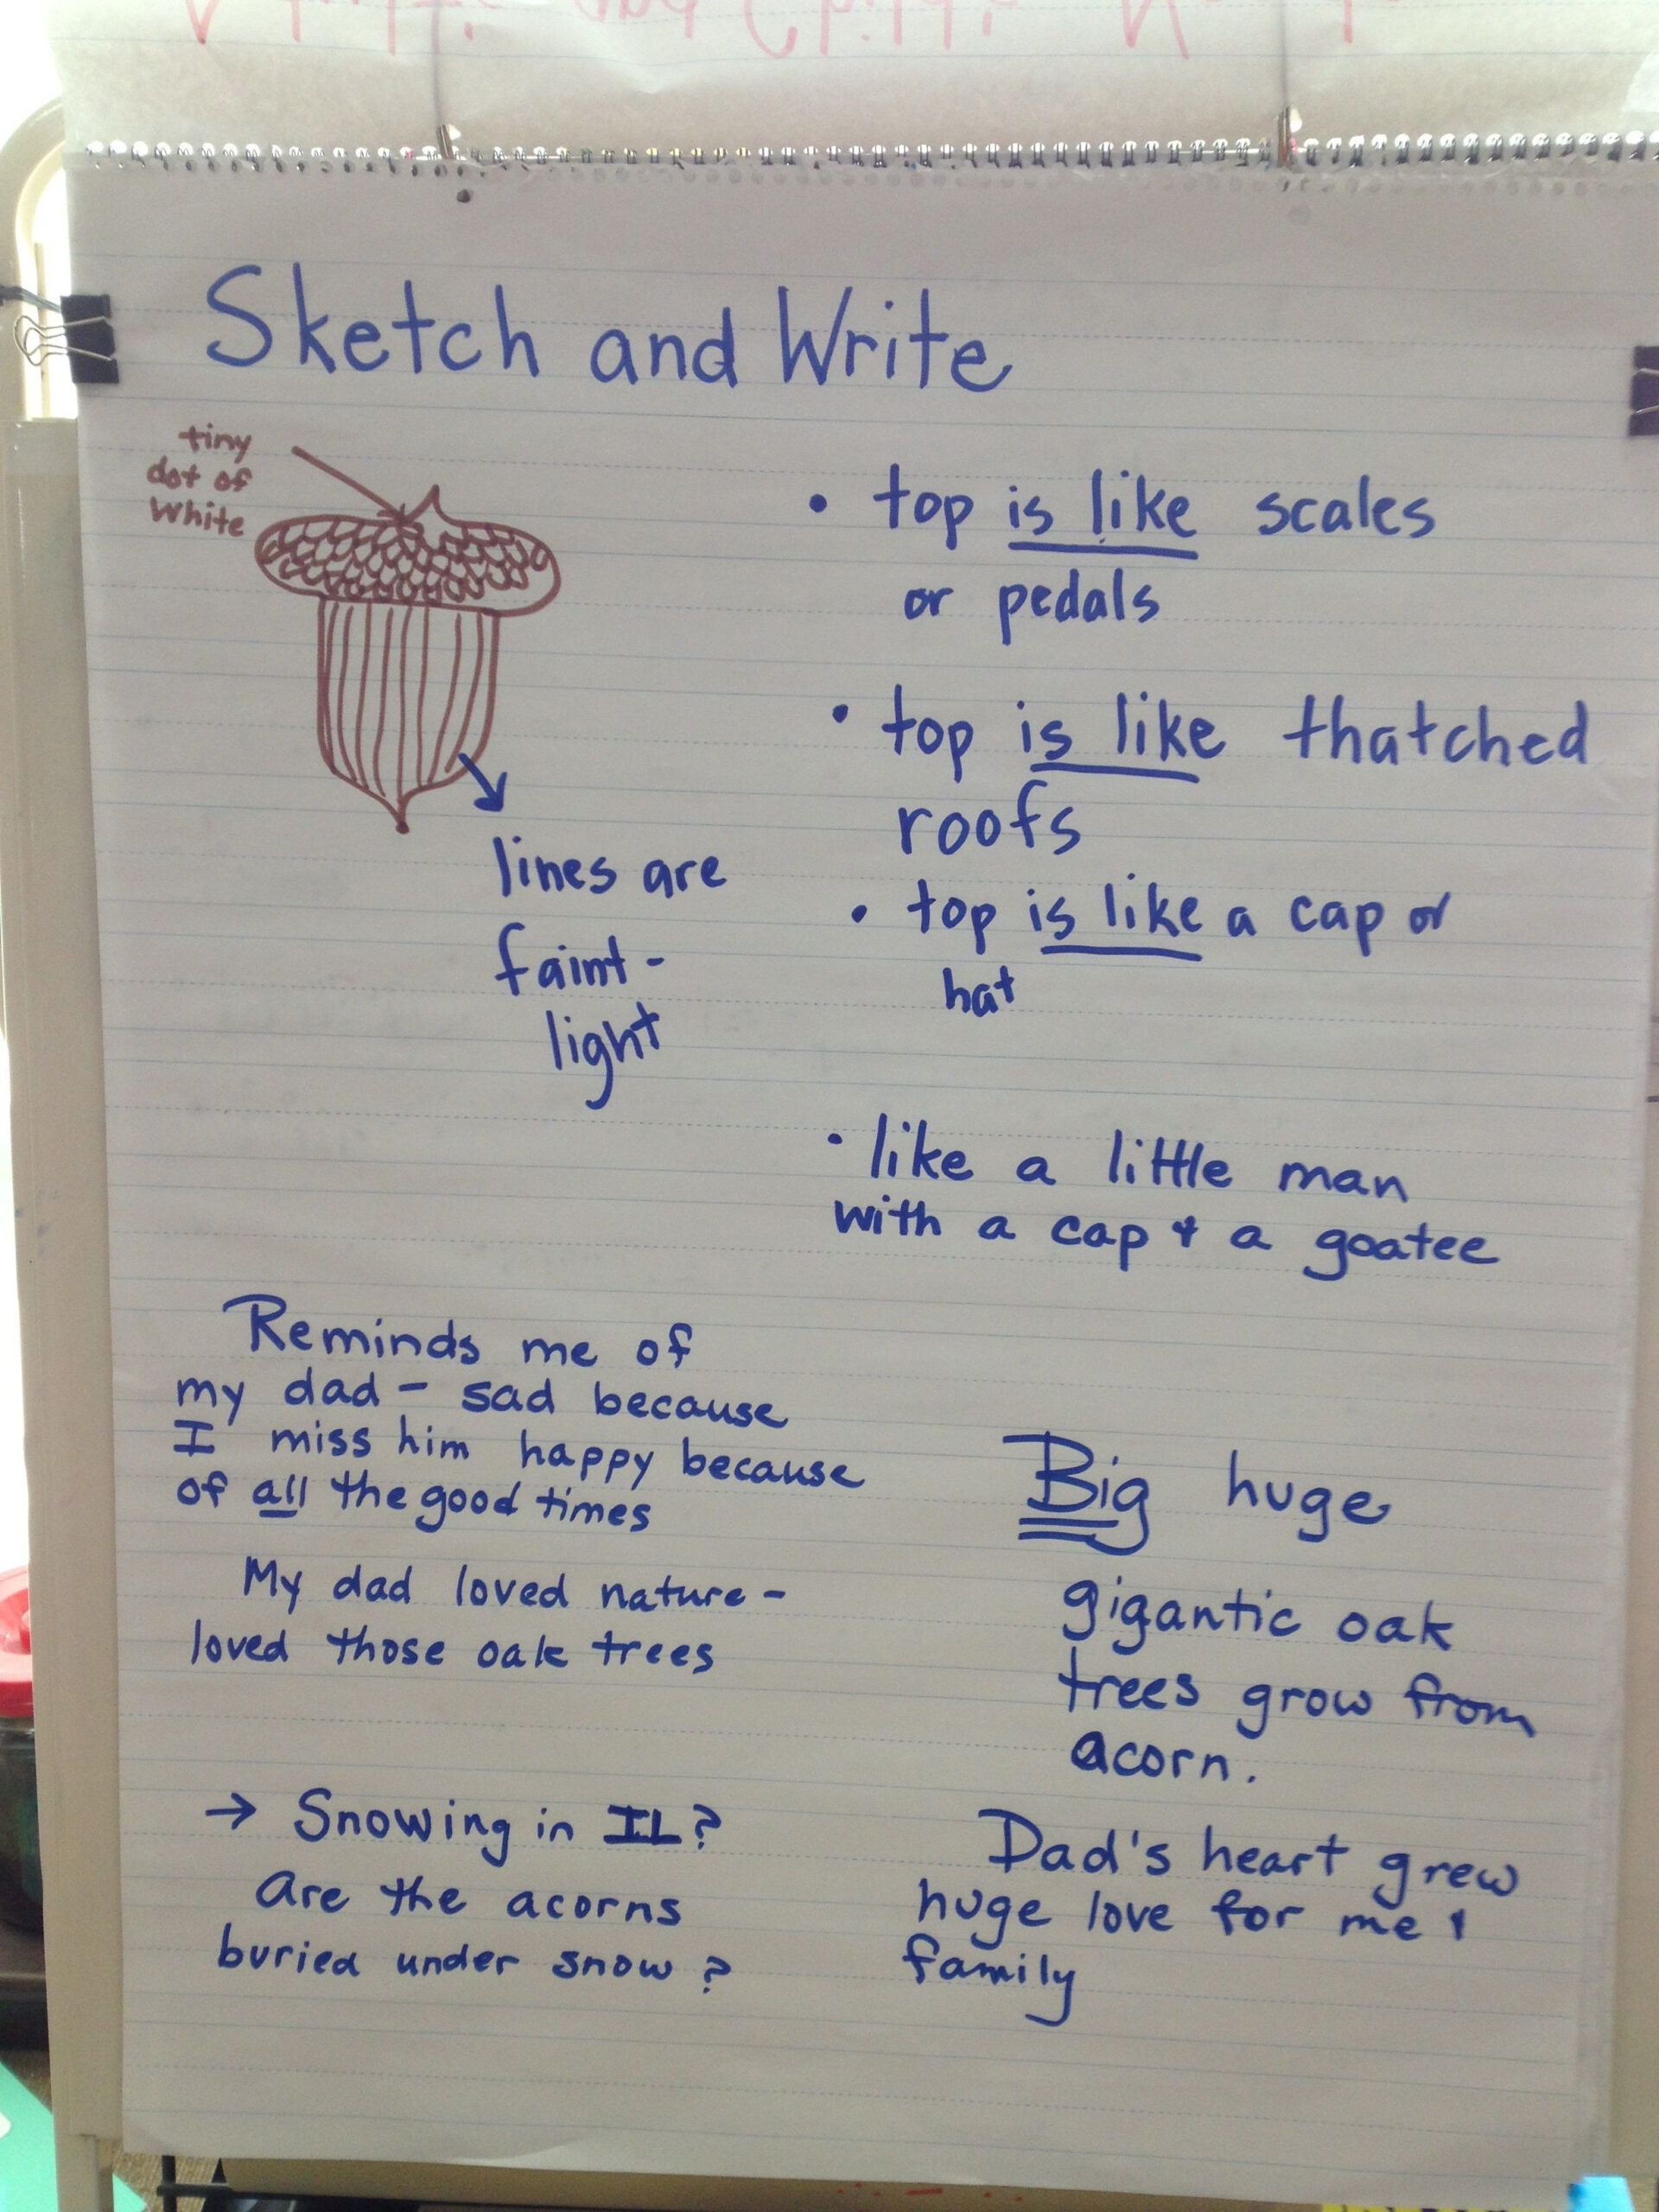 Sketch and Write
tiny
dot of
white
lines are
faint -
light
• top is like scales
or pedals
• top is like thatched
roofs
• top is like a cap or
hat
• like a little man
with a cap & a goatee
Reminds me of
my dad - sad because
I miss him happy because
of all the good times
My dad loved nature -
loved those oak trees
→ Snowing in IL?
Are the acorns
buried under snow?
Big huge
gigantic oak
trees grow from
acorn.
Dad's heart grew
huge love for me &
family